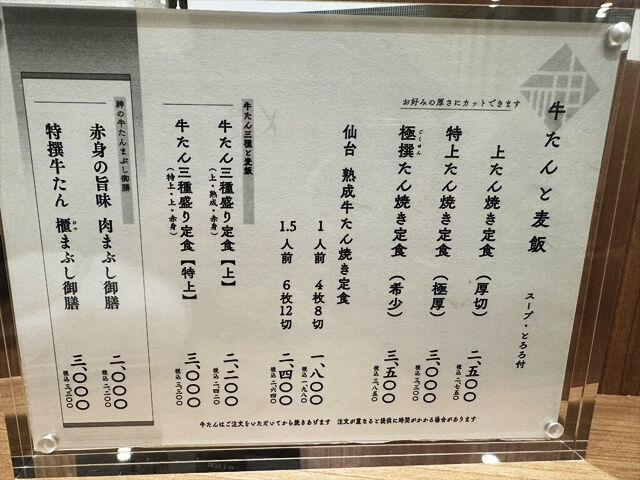 牛たんと麦飯
スープ・とろろ付
お好みの厚さにカットできます
上たん焼き定食(厚切)
二、五〇〇
税込 二、七五〇
特上たん焼き定食(極厚)
三、〇〇〇
税込 三、三〇〇
ごくせん
極撰たん焼き定食(希少)
三、五〇〇
税込 三、八五〇
仙台 熟成牛たん焼き定食
1人前 4枚8切
一、八〇〇
税込 一、九八〇
1.5人前 6枚12切
二、四〇〇
税込 二、六四〇
牛たん三種と麦飯
牛たん三種盛り定食【上】
(上・熟成・赤身)
二、二〇〇
税込 二、四二〇
牛たん三種盛り定食【特上】
(特上・上・赤身)
三、〇〇〇
税込 三、三〇〇
神の牛たんまぶし御膳
赤身の旨味 肉まぶし御膳
二、〇〇〇
税込 二、二〇〇
特撰牛たん 櫃まぶし御膳
ひつ
三、〇〇〇
税込 三、三〇〇
牛たんはご注文をいただいてから焼きあげます 注文が重なると提供に時間がかかる場合があります